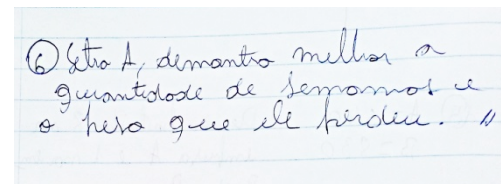 ⑥ Letra A, demontra melhor a
quantidade de semanas e
o peso que ele perdeu. //